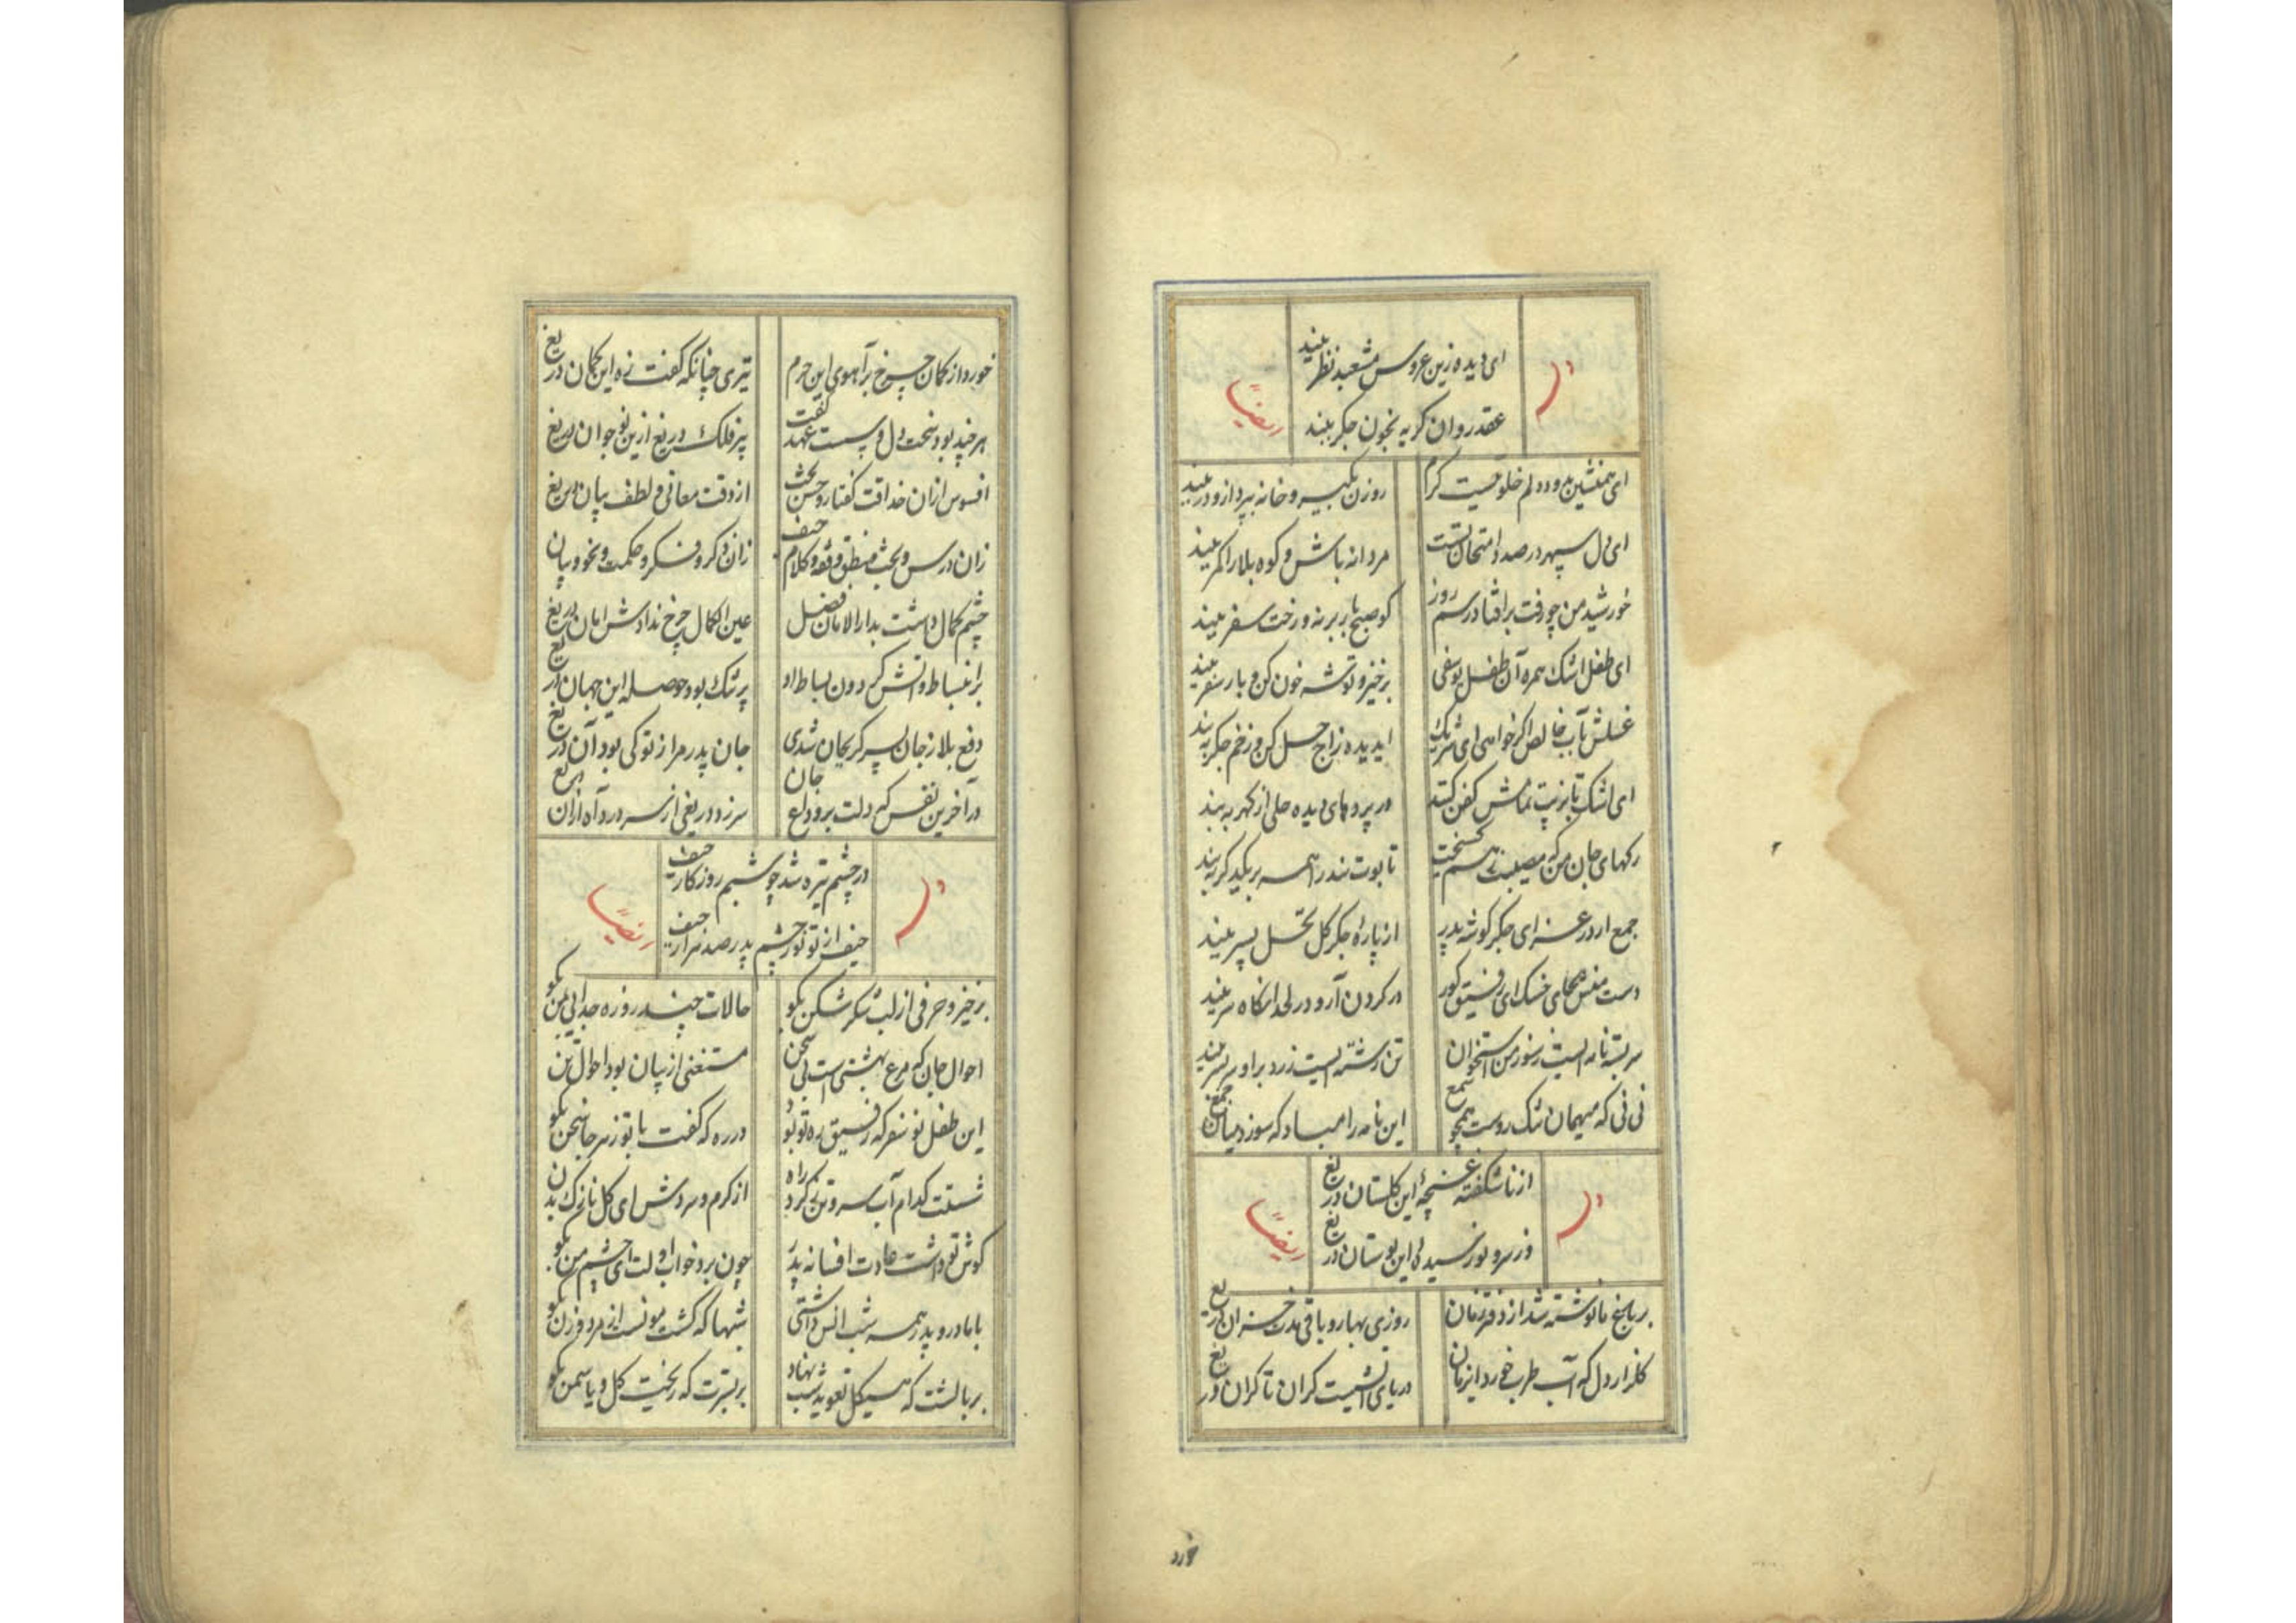 ای دیده زین عروس مشعبد نظر ببند
وله ایضاً
عقد روان گریه بخون جگر ببند
ای همنشین برو دلم خلوتیست گرم
روزن بگیر و خانه بپرداز و در ببند
ای دل سپهر در صدد امتحان تست
مردانه باش و کوه بلا را کمر ببند
خورشید من چو رفت برافتاد رسم روز
گو صبح بار بر نه و رخت سفر ببند
ای طفل اشک همره آن طفل یوسفی
برخیز و توشه خون کن و بار سفر ببند
غسلش بآب خالص اگر خواهی ای سرشک
ای دیده زاج حل کن و زخم جگر ببند
ای اشک تا بزینت نماش کفن کنند
در پرده های دیده حلی از گهر ببند
رگهای جان من که مصیبت ز هم گسیخت
تابوت بندرا همه بر یکدگر ببند
جمع آر در عزای جگر گوشه پدر
از پاره جگر گل نخل پسر ببند
دست منش بجای خسک ای رفیق گور
در گردن آر و در لحد آنگاه سر ببند
سر بسته نامه ایست ز سوز من استخوان
تن رشته ایست زرد بر او سر بسر ببند
نی نی که میهمان تنگ روست همچو شمع
این نامه را مباد که سوزد میان جمع
از ناشکفته غنچه این گلستان دریغ
وله ایضاً
وز سرو نورسیده این بوستان دریغ
بر باغ ما نوشته شد از دفتر زمان
روزی بهار و باقی مدت خزان دریغ
گلزار دل که آب طرب خورد این زمان
دریای آتشیست کران تا کران دریغ
خورد
خورد از کمان چرخ بر آهوی این حرم
تیری چنانکه گفت زه این کمان دریغ
هر چند بود سخت دل و سست عهد گفت
پیر فلک دریغ ازین نوجوان دریغ
افسوس ازان حداقت گفتار و حسن بحث
از دقت معانی و لطف بیان دریغ
زان درس و بحث منطق و فقه و کلام حیف
زان ذکر و فکر و حکمت و نحو و بیان
چشم کمال داشت بدار الامان فضل
عین الکمال چرخ ندادش امان دریغ
بر انبساط وانشش گردون بساط او
پر تنگ بود حوصله این جهان دریغ
دفع بلا ز جان پسر گر بجان شدی
جان پدر مرا ز تو کی بود آن دریغ
در آخرین نفس که دلت برد وداع جان
سر زد دریغی از سر درد آه ازان دریغ
در چشم تیره شد چو شبم روزگار حیف
وله ایضاً
حیف از تو نور چشم پدر صد هزار حیف
برخیز و حرفی از لب شکر شکن بگو
حالات چند روزه جدایی بمن بگو
احوال جان که مرغ بهشتی است بی سخن
مستغنی از بیان بود احوال تن
این طفل نو سفر که رفیق ره تو بود
در ره که گفت با تو ز هر جا سخن بگو
شستت کدام آب سر و تن بگرد راه
از گرم و سردش ای گل نازک بدن
گوش تو داشت عادت افسانه پدر
چون برد خواب اولت ای چشم من بگو
با مادر و پدر همه شب انس داشتی
شبها که گشت مونست از مرد و زن بگو
بر بالشت که هیکل تعویذ شب نهاد
بر بسترت که ریخت گل و یاسمن بگو